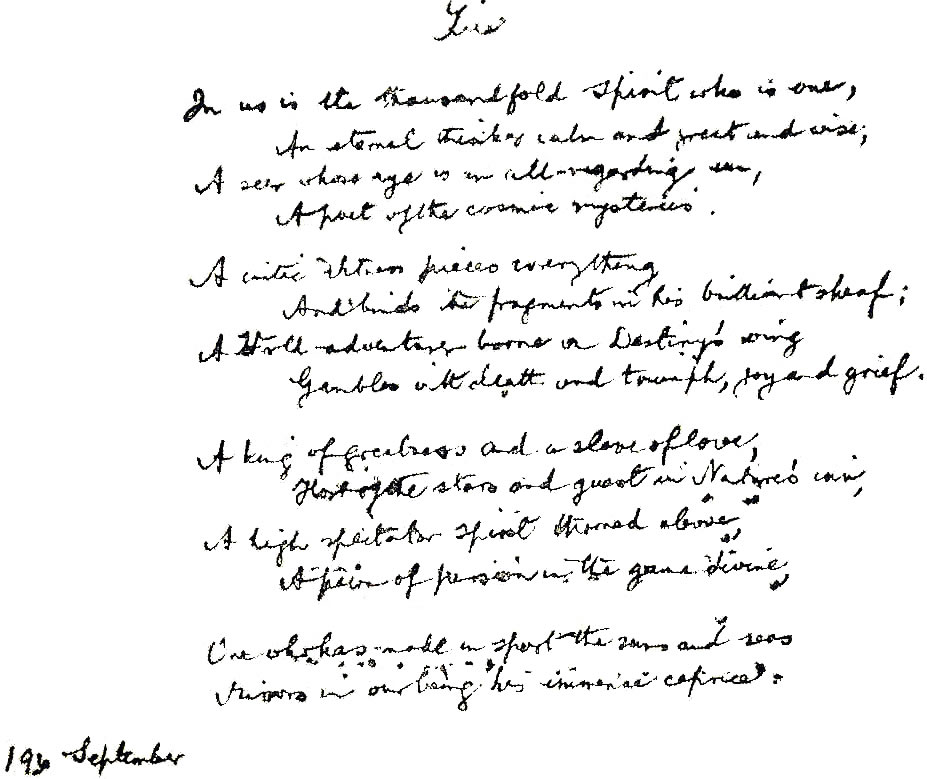 Lila
In us is the thousandfold Spirit who is one,
An eternal thinker calm and great and wise,
A seer whose eye is an all-regarding sun,
A poet of the cosmic mysteries.
A critic Witness pieces everything
And binds the fragments in his brilliant sheaf;
A World-adventurer borne on Destiny's wing
Gambles with death and triumph, joy and grief.
A king of greatness and a slave of love,
Host of the stars and guest in Nature's inn,
A high spectator spirit throned above,
A pawn of passion in the game divine,
One who has made in sport the suns and seas
Mirrors in our being his immense caprice.
September